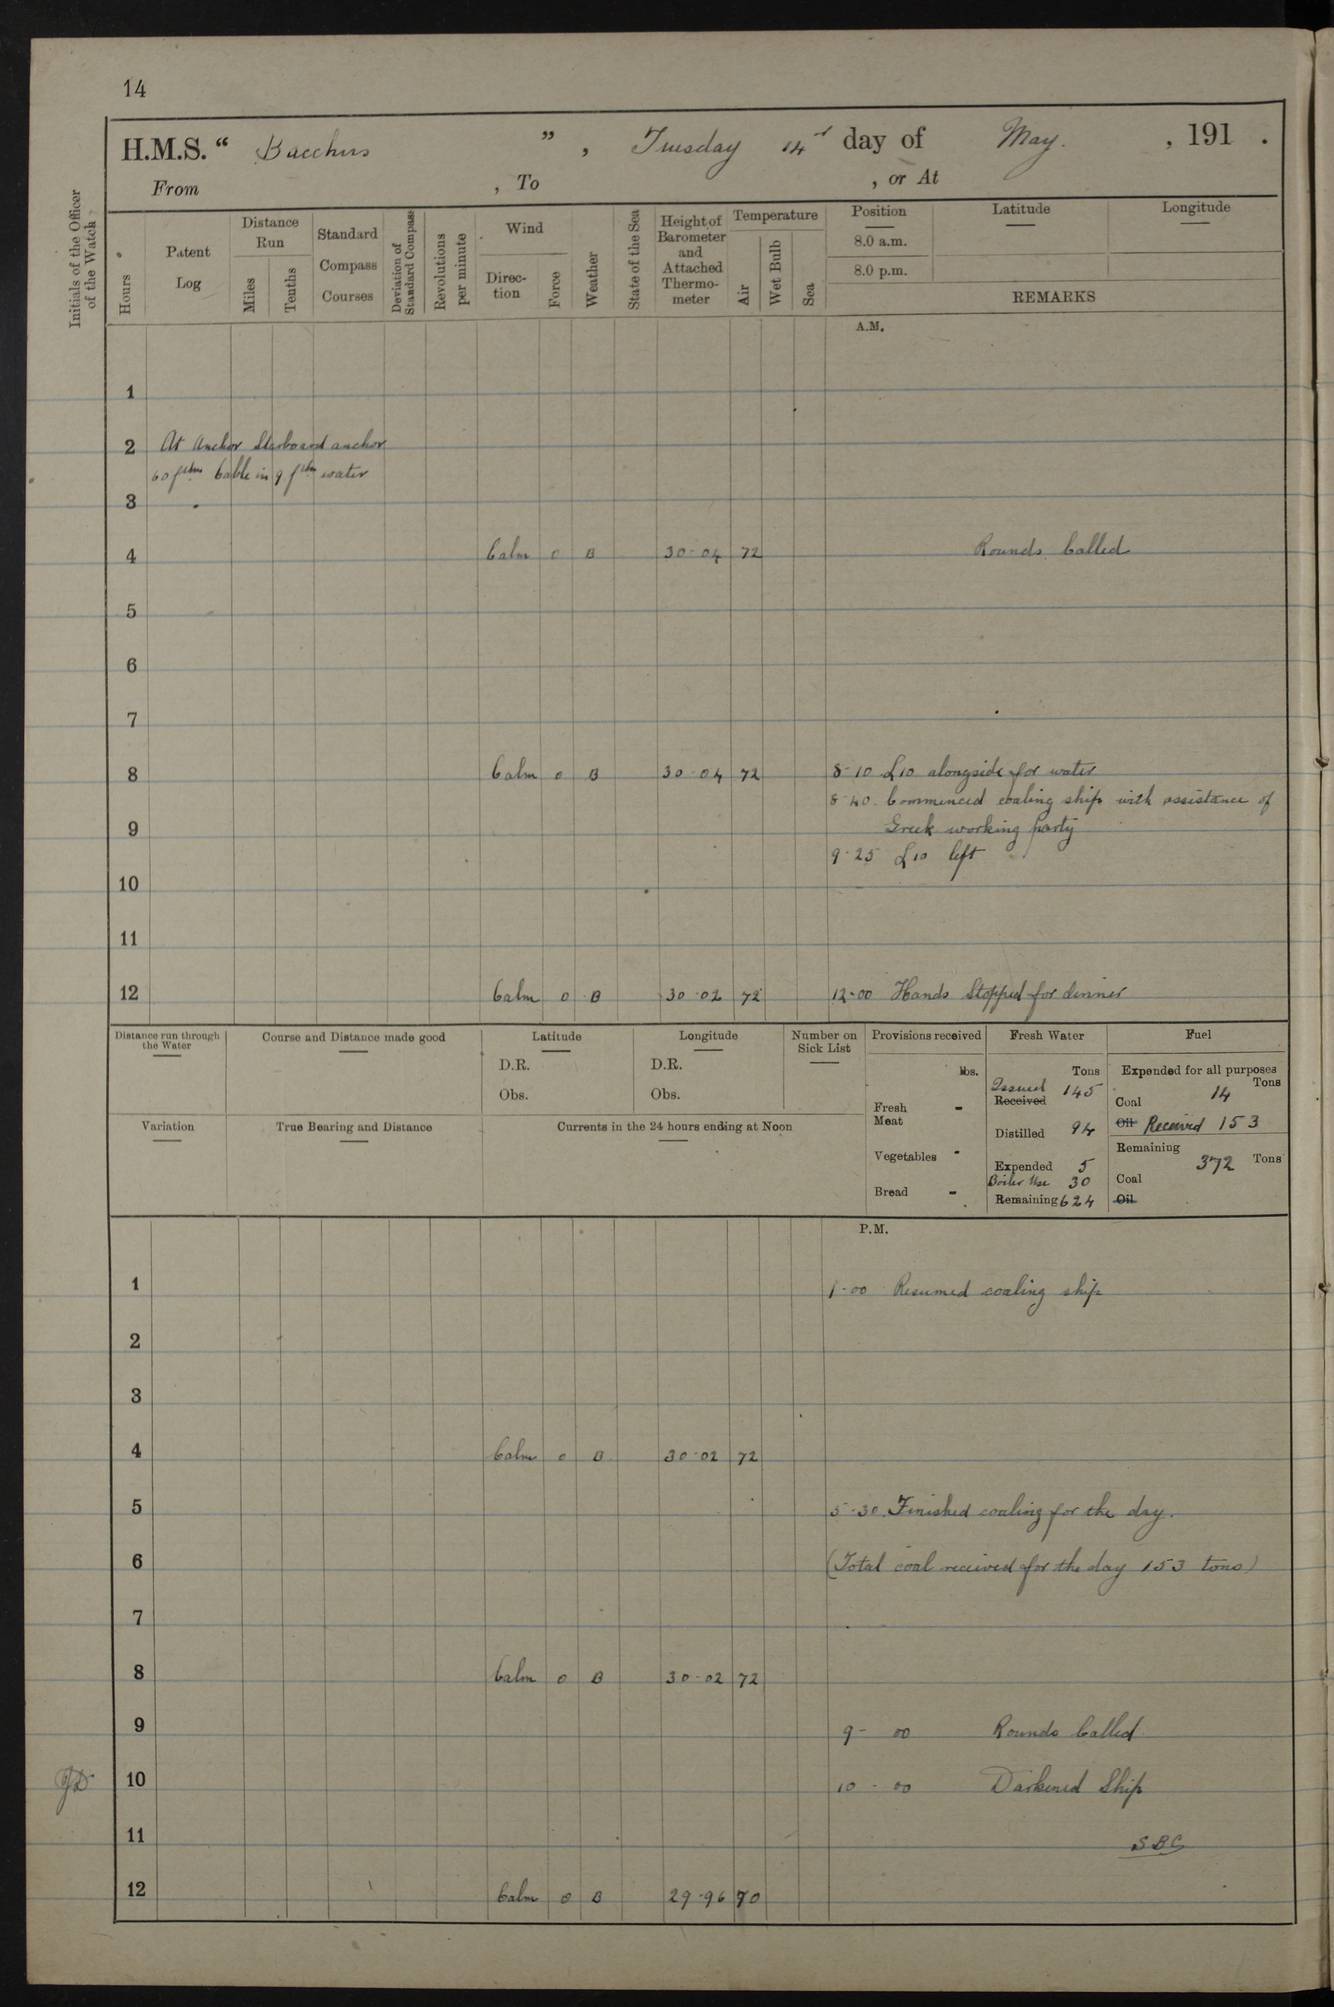 14
H.M.S. " Bacchus ", Tuesday 14 day of May. , 191 .
From , To , or At
Initials of the Officer of the Watch
Hours
Patent Log
Distance Run
Miles
Tenths
Standard Compass Courses
Deviation of Standard Compass
Revolutions per minute
Wind
Direction
Force
Weather
State of the Sea
Height of Barometer and Attached Thermometer
Temperature
Air
Wet Bulb
Sea
Position Latitude Longitude
8.0 a.m.
8.0 p.m.
REMARKS
A.M.
1
2 At Anchor Starboard anchor
60 fthm Cable in 9 fthm water
3
4 Calm 0 B 30·04 72 Rounds Called
5
6
7
8 Calm 0 B 30·04 72 8-10 L10 alongside for water
8-40. Commenced coaling ship with assistance of
9 Greek working party
9-25 L10 left
10
11
12 Calm 0 B 30·02 72 12-00 Hands Stopped for dinner
Distance run through the Water
Course and Distance made good
Latitude
D.R.
Obs.
Longitude
D.R.
Obs.
Number on Sick List
Variation
True Bearing and Distance
Currents in the 24 hours ending at Noon
Provisions received
lbs.
Fresh Meat -
Vegetables -
Bread -
Fresh Water
Tons
Issued 145
Received
Distilled 94
Expended 5
Boiler Use 30
Remaining 624
Fuel
Expended for all purposes
Tons
Coal 14
Oil Received 153
Remaining
372 Tons
Coal
Oil
P.M.
1 1-00 Resumed coaling ship
2
3
4 Calm 0 B 30·02 72
5 5-30. Finished coaling for the day.
6 (Total coal received for the day 153 tons)
7
8 Calm 0 B 30·02 72
9 9- 00 Rounds Called
10 10 - 00 Darkened Ship
11 SBC
12 Calm 0 B 29·96 70